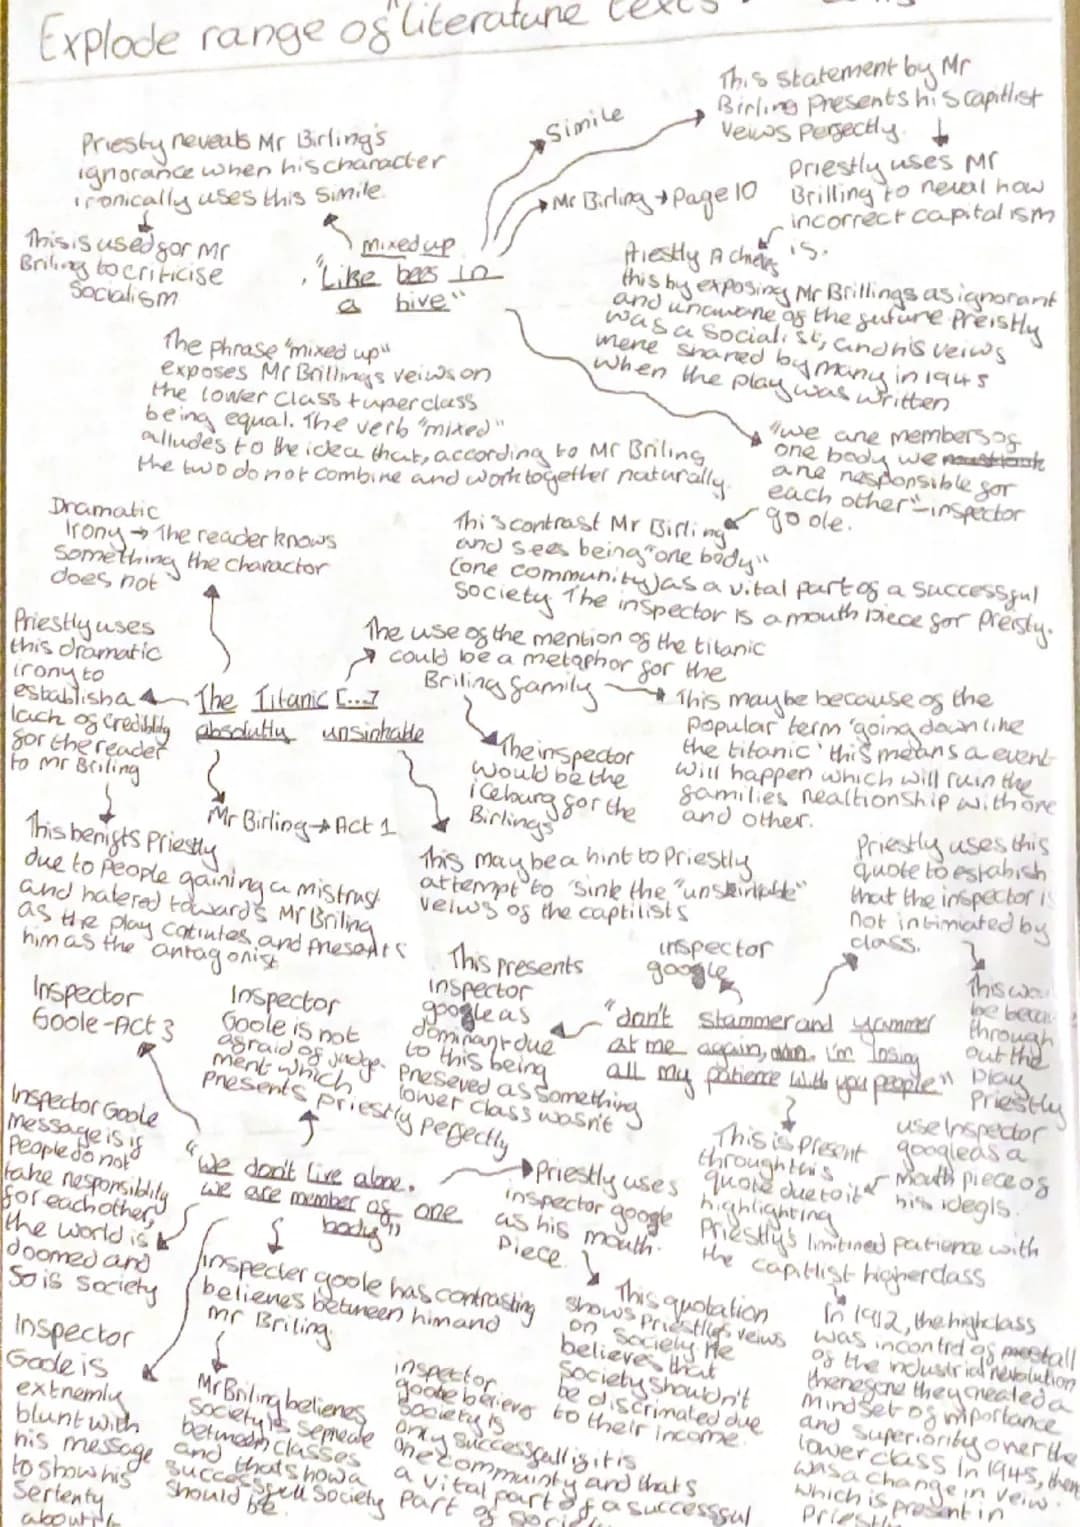 Explode range of "literature texts
This statement by Mr
Birling presents his capitlist
veiws perfectly.
Simile
Priestly neveals Mr Birling's
ignorance when his character
ironically uses this simile.
Mr Birling → Page 10
Priestly uses Mr
Brilling to neveal how
incorrect capitalism
is.
This is used for Mr
Briling to criticise
Socialism
mixed up
"Like bees in
a hive"
Priestly Acheives
this by exposing Mr Brillings as ignorant
and unaware of the future Preistly
was a socialist, and his veiws
were shared by many in 1945
when the play was written
The phrase "mixed up"
exposes Mr Brillings veiws on
the lower class + uperclass
being equal. The verb "mixed"
alludes to the idea that, according to Mr Briling
the two do not combine and work together naturally.
"we are members of
one body we
are responsible for
each other" - inspector
goole.
Dramatic
Irony → The reader knows
something the charactor
does not
This contrast Mr Birling
and sees being "one body"
(one community) as a vital part of a successful
society. The inspector is a mouth piece for Preisty.
Priestly uses
this dramatic
irony to
establish a
lack of credibility
for the reader
to Mr Briling
The use of the mention of the titanic
could be a metaphor for the
Briling family
The Titanic [...]
absolutly unsinkable
This maybe because of the
popular term 'going down like
the titanic' this means a event
will happen which will ruin the
families nealtionship with one
and other.
The inspector
would be the
iceburg for the
Birlings
Mr Birling → Act 1
This benifits Priestly
due to people gaining a mistrust
and hatered towards Mr Briling
as the play continues and presents
him as the antagonist
This may be a hint to Priestly
attempt to 'sink the "unsinkable"
veiws of the captilists
Priestly uses this
quote to estabish
that the inspector is
not intimiated by
class.
inspector
google
This presents
inspector
google as
dominant due
to this being
preseved as something
lower class wasn't
"don't stammer and yammer
at me again, man. I'm losing
all my patience with you people"
This wou
be becau
through
out the
play
Priestly
use Inspector
google as a
mouth piece of
his idegls.
Inspector
Goole - Act 3
Inspector
Goole is not
afraid of judge-
ment which
presents priestly perfectly
Inspector Goole
message is if
people do not
take responsiblily
for each other,
the world is
doomed and
so is society
"We don't live alone.
we are member of one
body"
Priestly uses
inspector google
as his mouth
piece.
This is present
through this
quote due to it
highlighting
Priestly's limitined patience with
the capitlist higher class
inspecter goole has contrasting
believes between him and
mr Briling.
This quotation
shows Priestly's veiws
on society. He
believes that
society shouldn't
be discrimated due
to their income.
In 1912, the high class
was in contrel of most all
of the industrial revolution
therefore they created a
mindset of importance
and superiority over the
lower class. In 1945, there
was a change in veiw.
which is present in
Priestly
Inspector
Goole is
extremly
blunt with
his message
to show his
Sertenty
about
Mr Briling believes
society is seperate
between classes
and thats how a
successfull society
should be.
inspector
goole believes
society is
only successfull if it is
one community and thats
a vital part of a successful